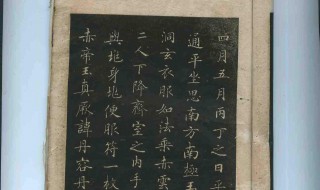 四月五月丙丁之日平
通平坐思南方南極玉
洞玄衣服如法乘赤雲
二人下降齋室之内手
與兆身兆便服符一枚
赤帝玉真厥諱丹容丹